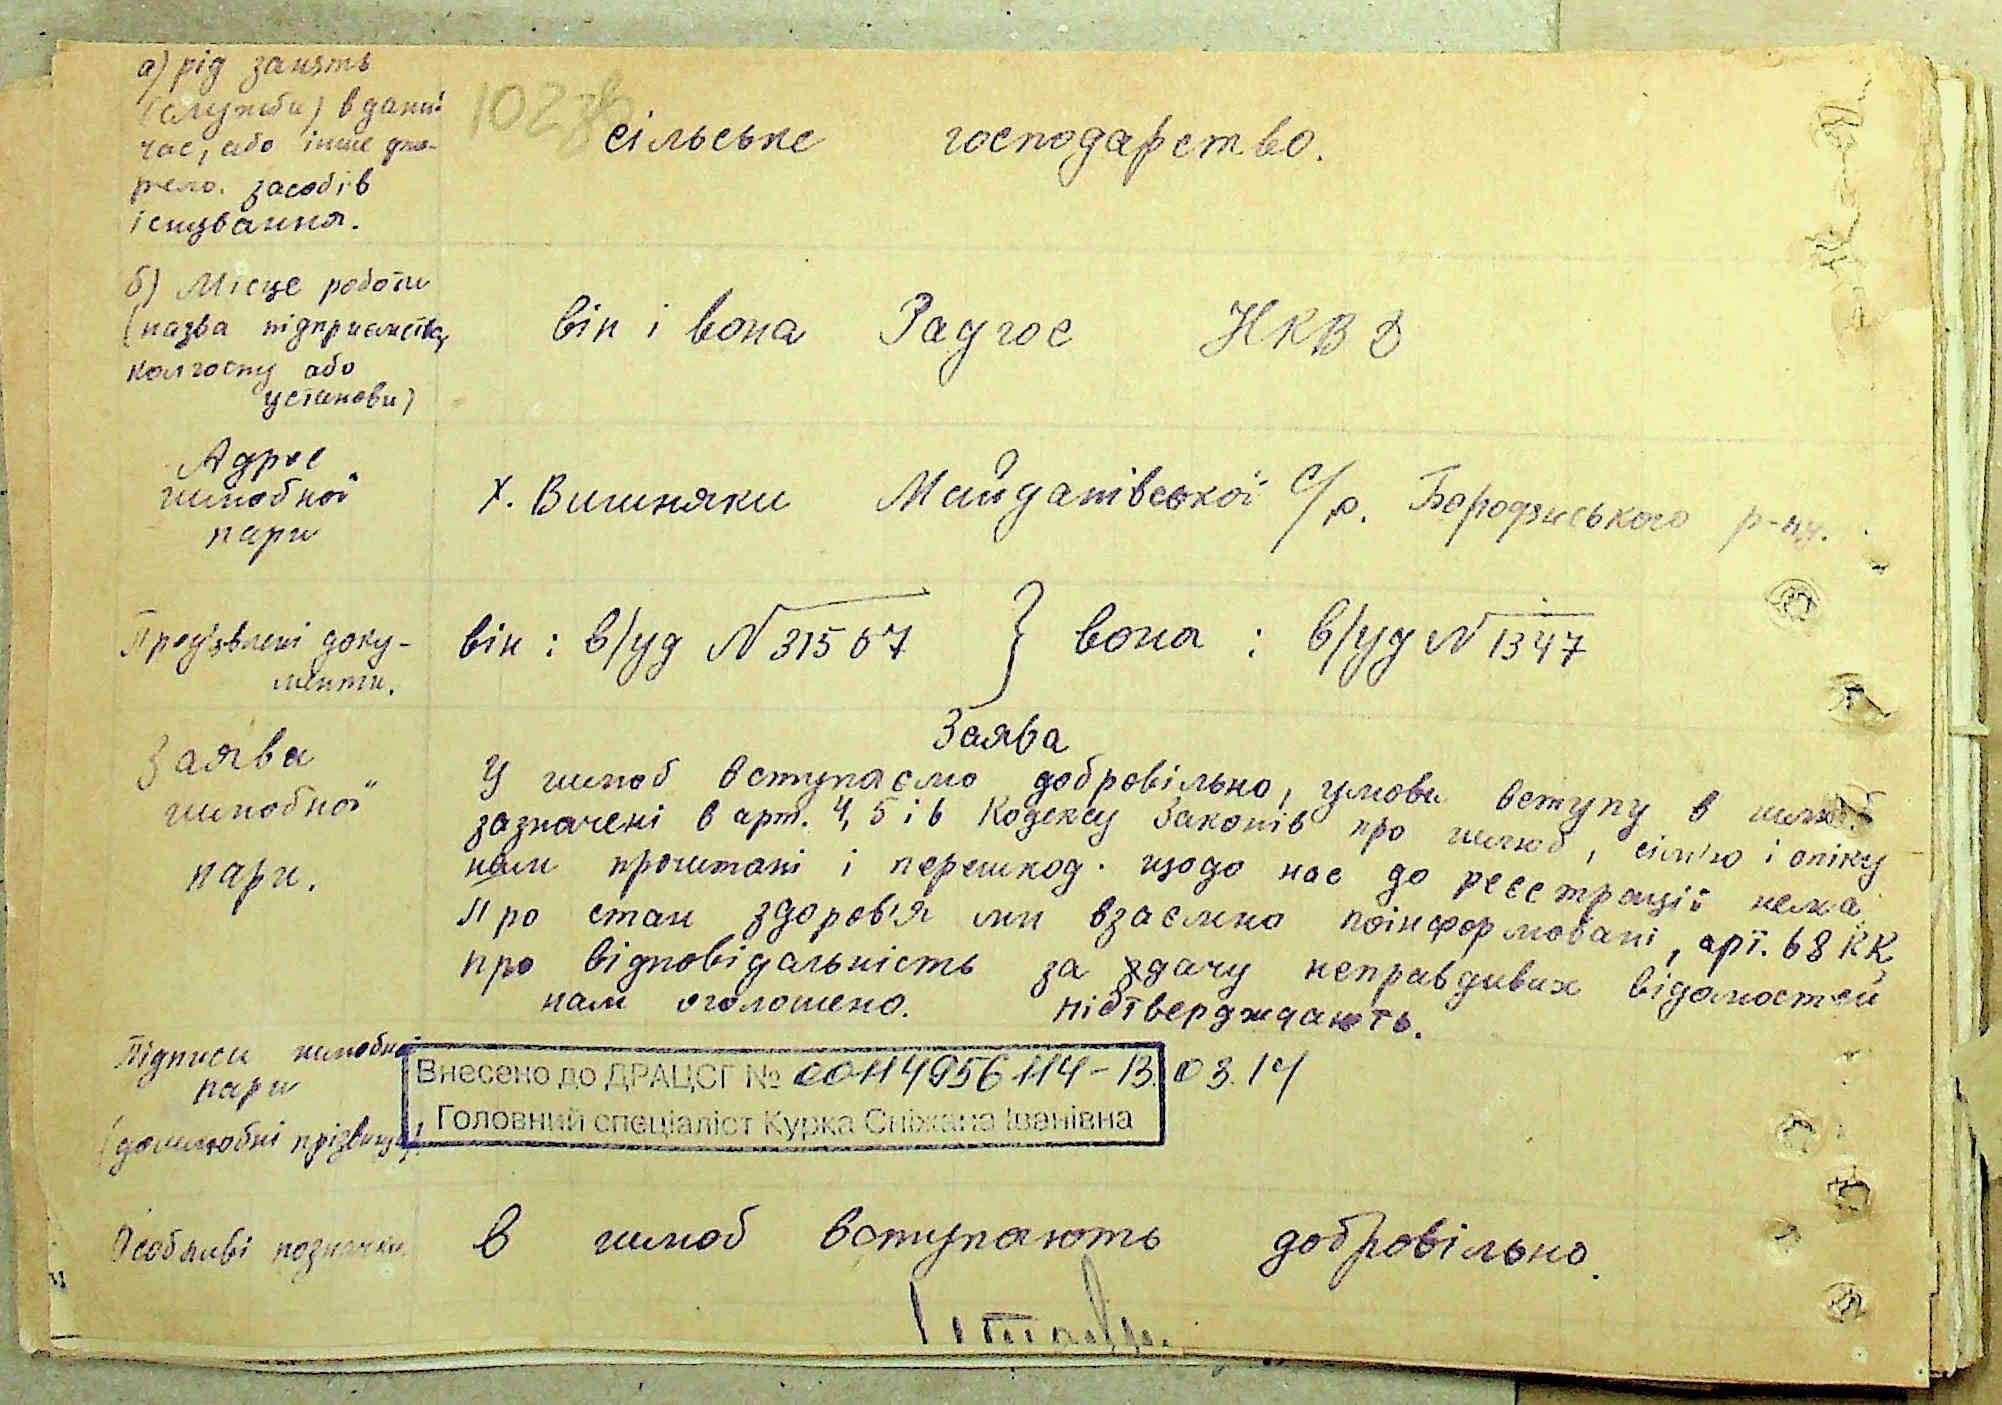 а) рід занять
(служби) в даний
час, або інше дже-
рело засобів
існування.
102зв
сільське господарство.
б) Місце роботи
(назва підприємства,
колгоспу або
установи)
він і вона Радгос НКВД
Адрес
шлюбної
пари
х. Вишняки Майданівської с/р. Бородянського р-ну.
Пред'явлені доку-
менти.
він : в/уд № 31507 } вона : в/уд № 1347
Заява
шлюбної
пари.
Заява
У шлюб вступаємо добровільно, умови вступу в шлюб
зазначені в арт. 4, 5 і 6 Кодексу Законів про шлюб, сім'ю і опіку
нам прочитані і перешкод щодо нас до реєстрації нема.
Про стан здоров'я ми взаємно поінформовані, арт. 68 КК
про відповідальність за здачу неправдивих відомостей
нам оголошено. підтверджають.
Підписи шлюбної
пари
(дошлюбні прізвища)
Внесено до ДРАЦСГ № 00114956114-13.03.14
Головний спеціаліст Курка Сніжана Іванівна
Особливі позначки
в шлюб вступають добровільно.